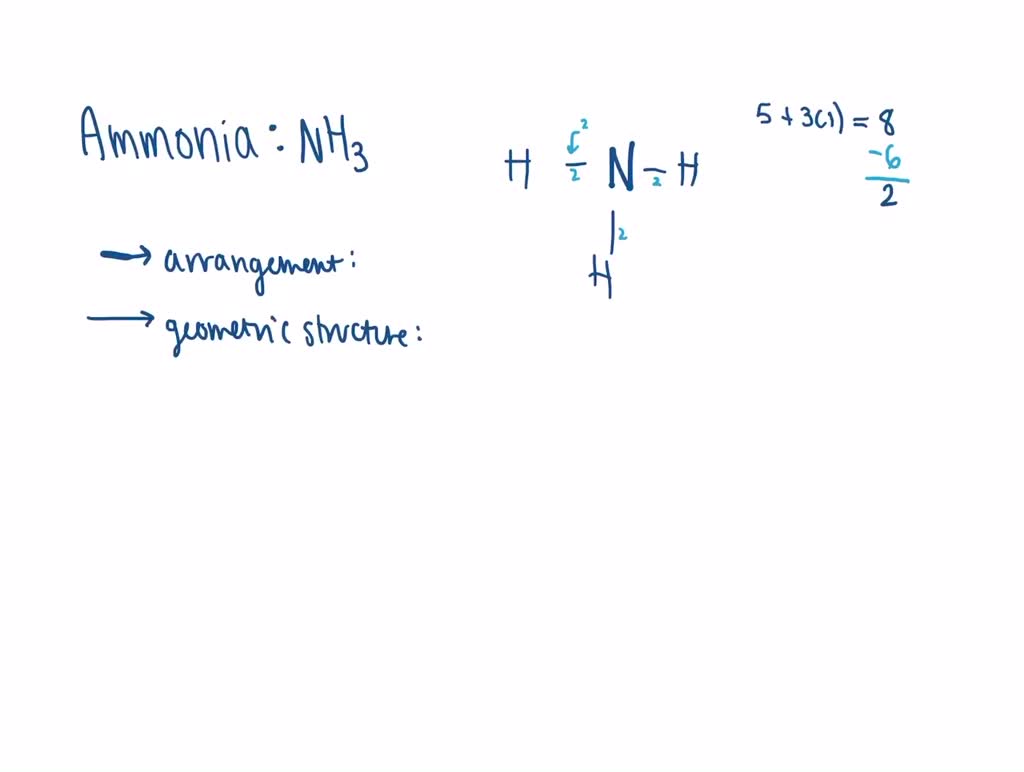 Ammonia: NH3
→ arrangement:
→ geometric structure:
2
H 2 N 2 H
2
H
5 + 3(1) = 8
-6
2